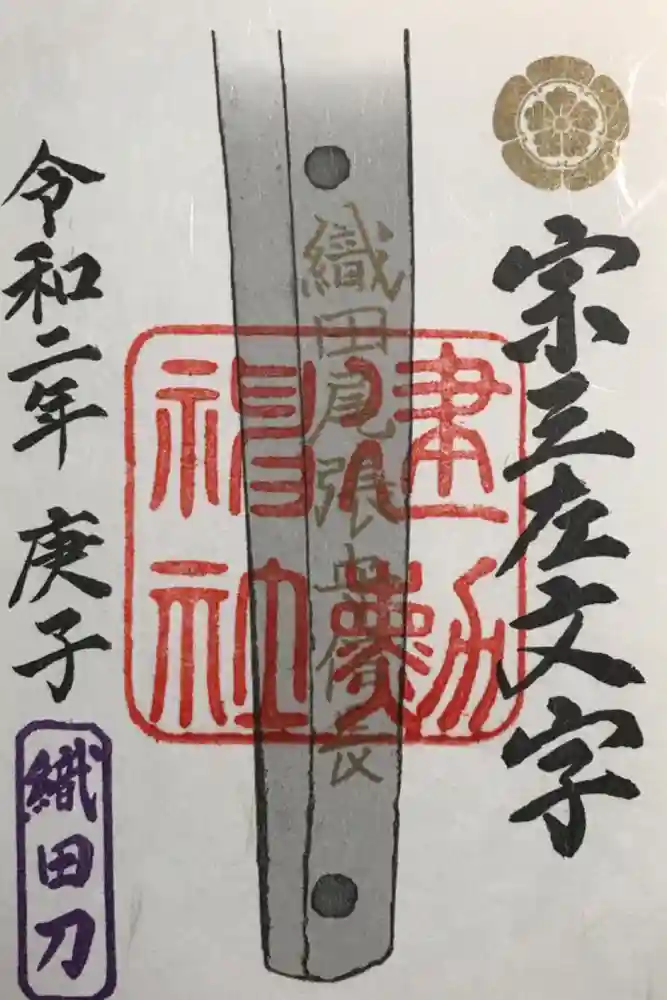 宗三左文字
織田尾張守信長
建勲神社
令和二年 庚子
織田刀